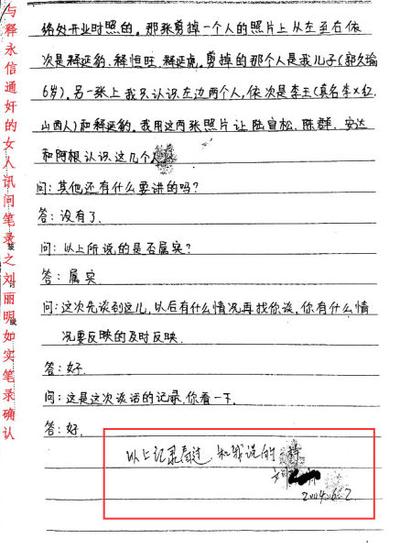 络处开业时照的。那张剪掉一个人的照片上从左至右依
次是释延豹、释恒旺、释延虎，剪掉的那个人是我儿子(郭久瑜
6岁)。另一张上我只认识左边两个人，依次是李王(真名李×红、
山西人)和释延豹。我用这两张照片让陆宣松、陈群、安达
和阿根认识这几个人
问：其他还有什么要讲的吗？
答：没有了。
问：以上所说的是否属实？
答：属实
问：这次先谈到这儿，以后有什么情况再找你谈，你有什么情
况要反映的及时反映.
答：好.
问：这是这次谈话的记录，你看一下.
答：好.
以上记录看过 和我说的一样
2004.6.2
与释永信通奸的女人讯问笔录之刘丽明如实笔录确认